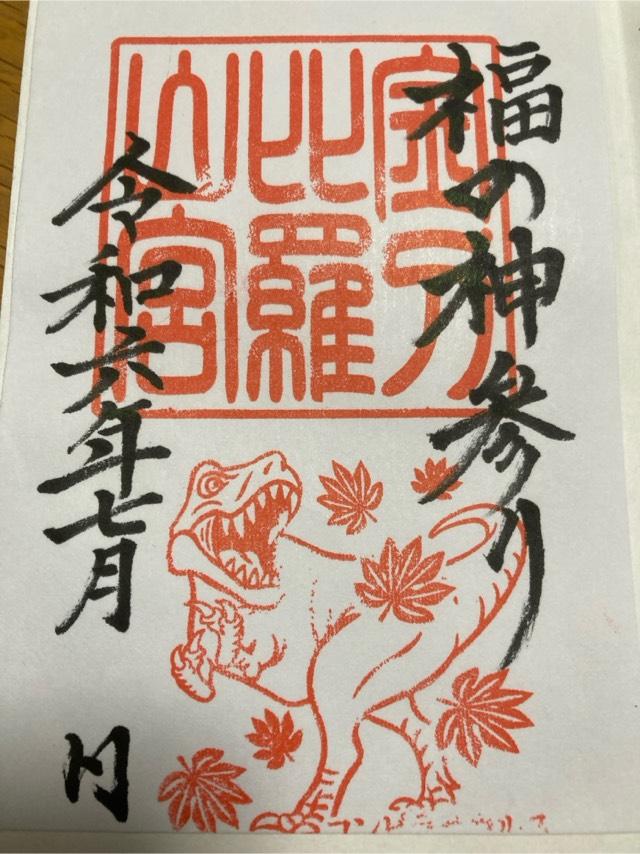 福の神参り
金刀
比羅
宮
令和六年七月
日